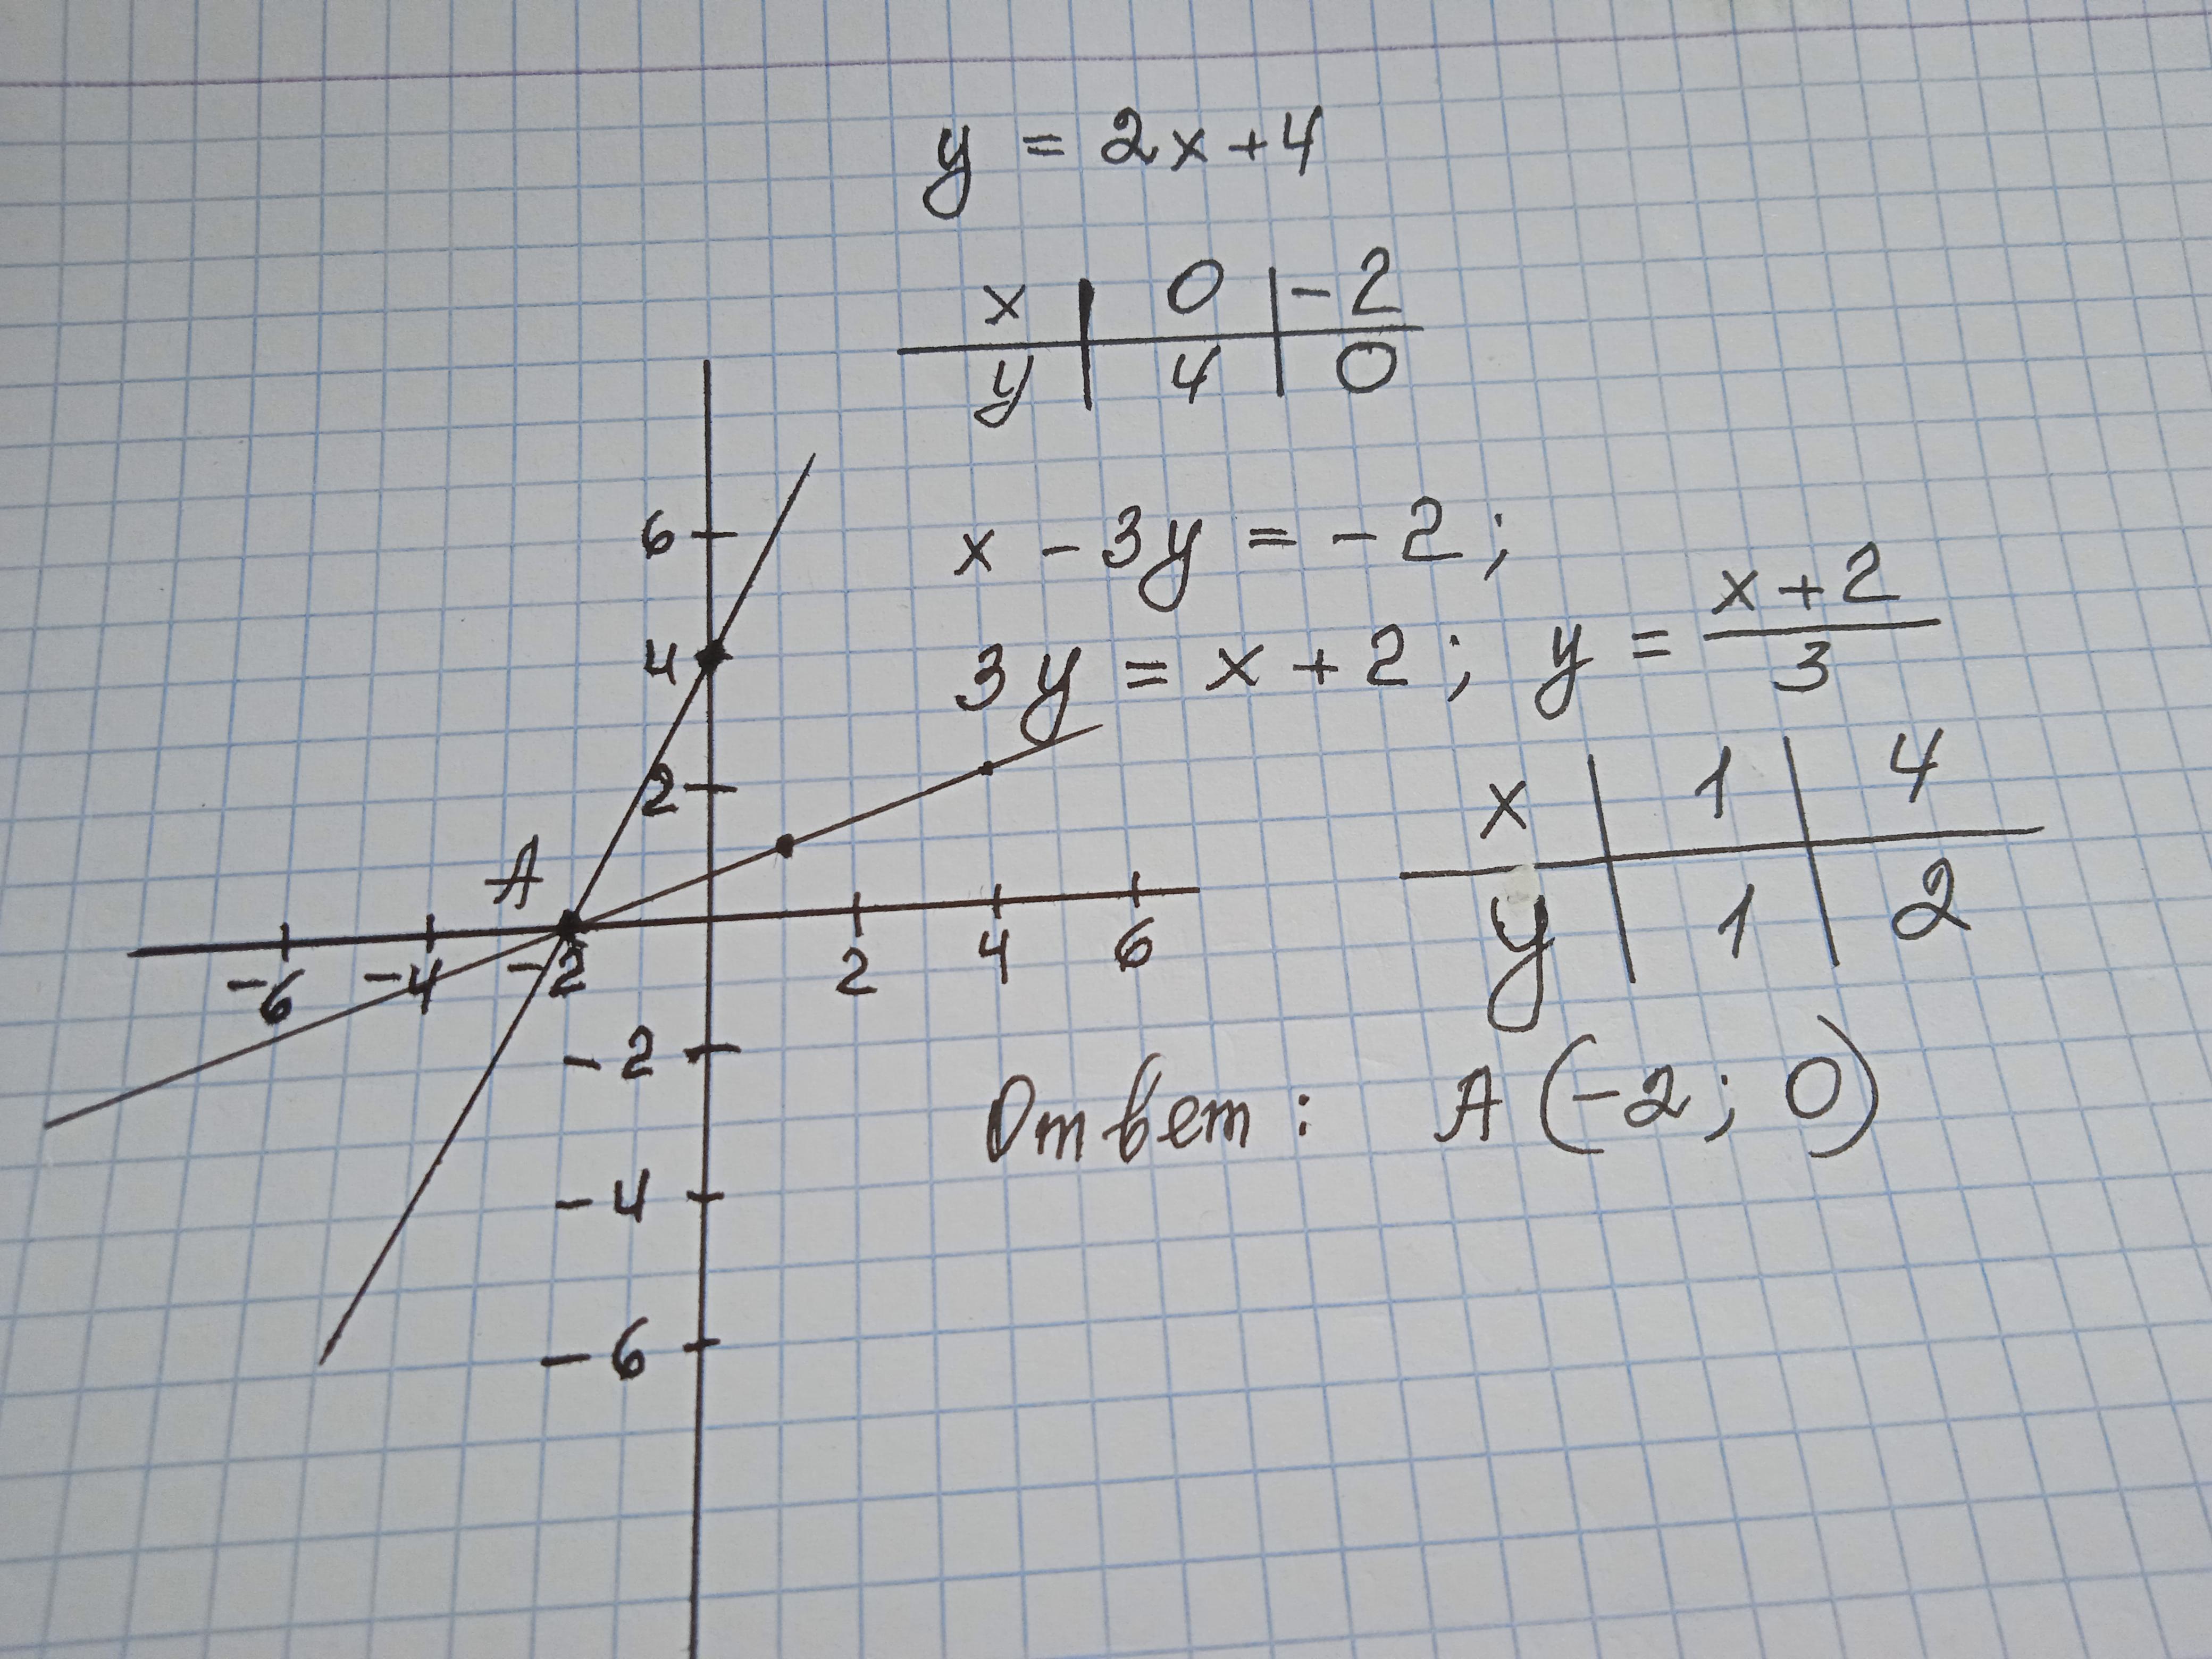 y = 2x+4
x | 0 | -2
y | 4 | 0
x - 3y = -2;
3y = x + 2; y = (x+2)/3
x | 1 | 4
y | 1 | 2
Ответ: A (-2; 0)
6
4
2
A
-6 -4 -2 2 4 6
-2
-4
-6